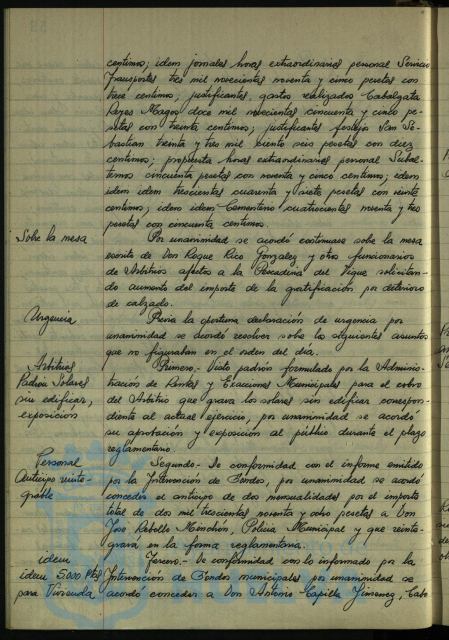 centimos; idem jornales horas extraordinarias personal Servicio
Transportes tres mil novecientas noventa y cinco pesetas con
trece centimos; justificantes, gastos realizados Cabalgata
Reyes Magos doce mil novecientas cincuenta y cinco pe-
setas con treinta centimos; justificantes festejos San Se-
bastian treinta y tres mil ciento seis pesetas con diez
centimos; propuesta horas extraordinarias personal Subal-
ternos cincuenta pesetas con noventa y cinco centimos; idem
idem idem trescientas cuarenta y siete pesetas con veinte
centimos; idem idem Cementerio cuatrocientas noventa y tres
pesetas con cincuenta centimos.
Sobre la mesa
Por unanimidad se acordó continuase sobre la mesa
escrito de Don Roque Rico Gonzalez y otros funcionarios
de Arbitrios afectos a la Pescaderia del Dique solicitan-
do aumento del importe de la gratificación por deterioro
de calzado.
Urgencia
Previa la oportuna declaración de urgencia por
unanimidad se acordó resolver sobre los siguientes asuntos
que no figuraban en el orden del dia.
Arbitrios
Padron Solares
sin edificar,
exposición
Primero.- Visto padrón formulado por la Adminis-
tración de Rentas y Exacciones Municipales para el cobro
del Arbitrio que grava los solares sin edificar correspon-
diente al actual ejercicio, por unanimidad se acordó
su aprobación y exposición al público durante el plazo
reglamentario.
Personal
Anticipo reinte-
grable
Segundo.- De conformidad con el informe emitido
por la Intervención de Fondos, por unanimidad se acordó
conceder el anticipo de dos mensualidades por el importe
total de dos mil trescientas noventa y ocho pesetas a Don
José Rebollo Monchón Policia Municipal y que reinte-
grará en la forma reglamentaria.
idem
idem 5.000 Ptas
para Vivienda
Tercero.- De conformidad con lo informado por la
Intervención de Fondos municipales por unanimidad se
acordó conceder a Don Antonio Capilla Jimenez, Cabo